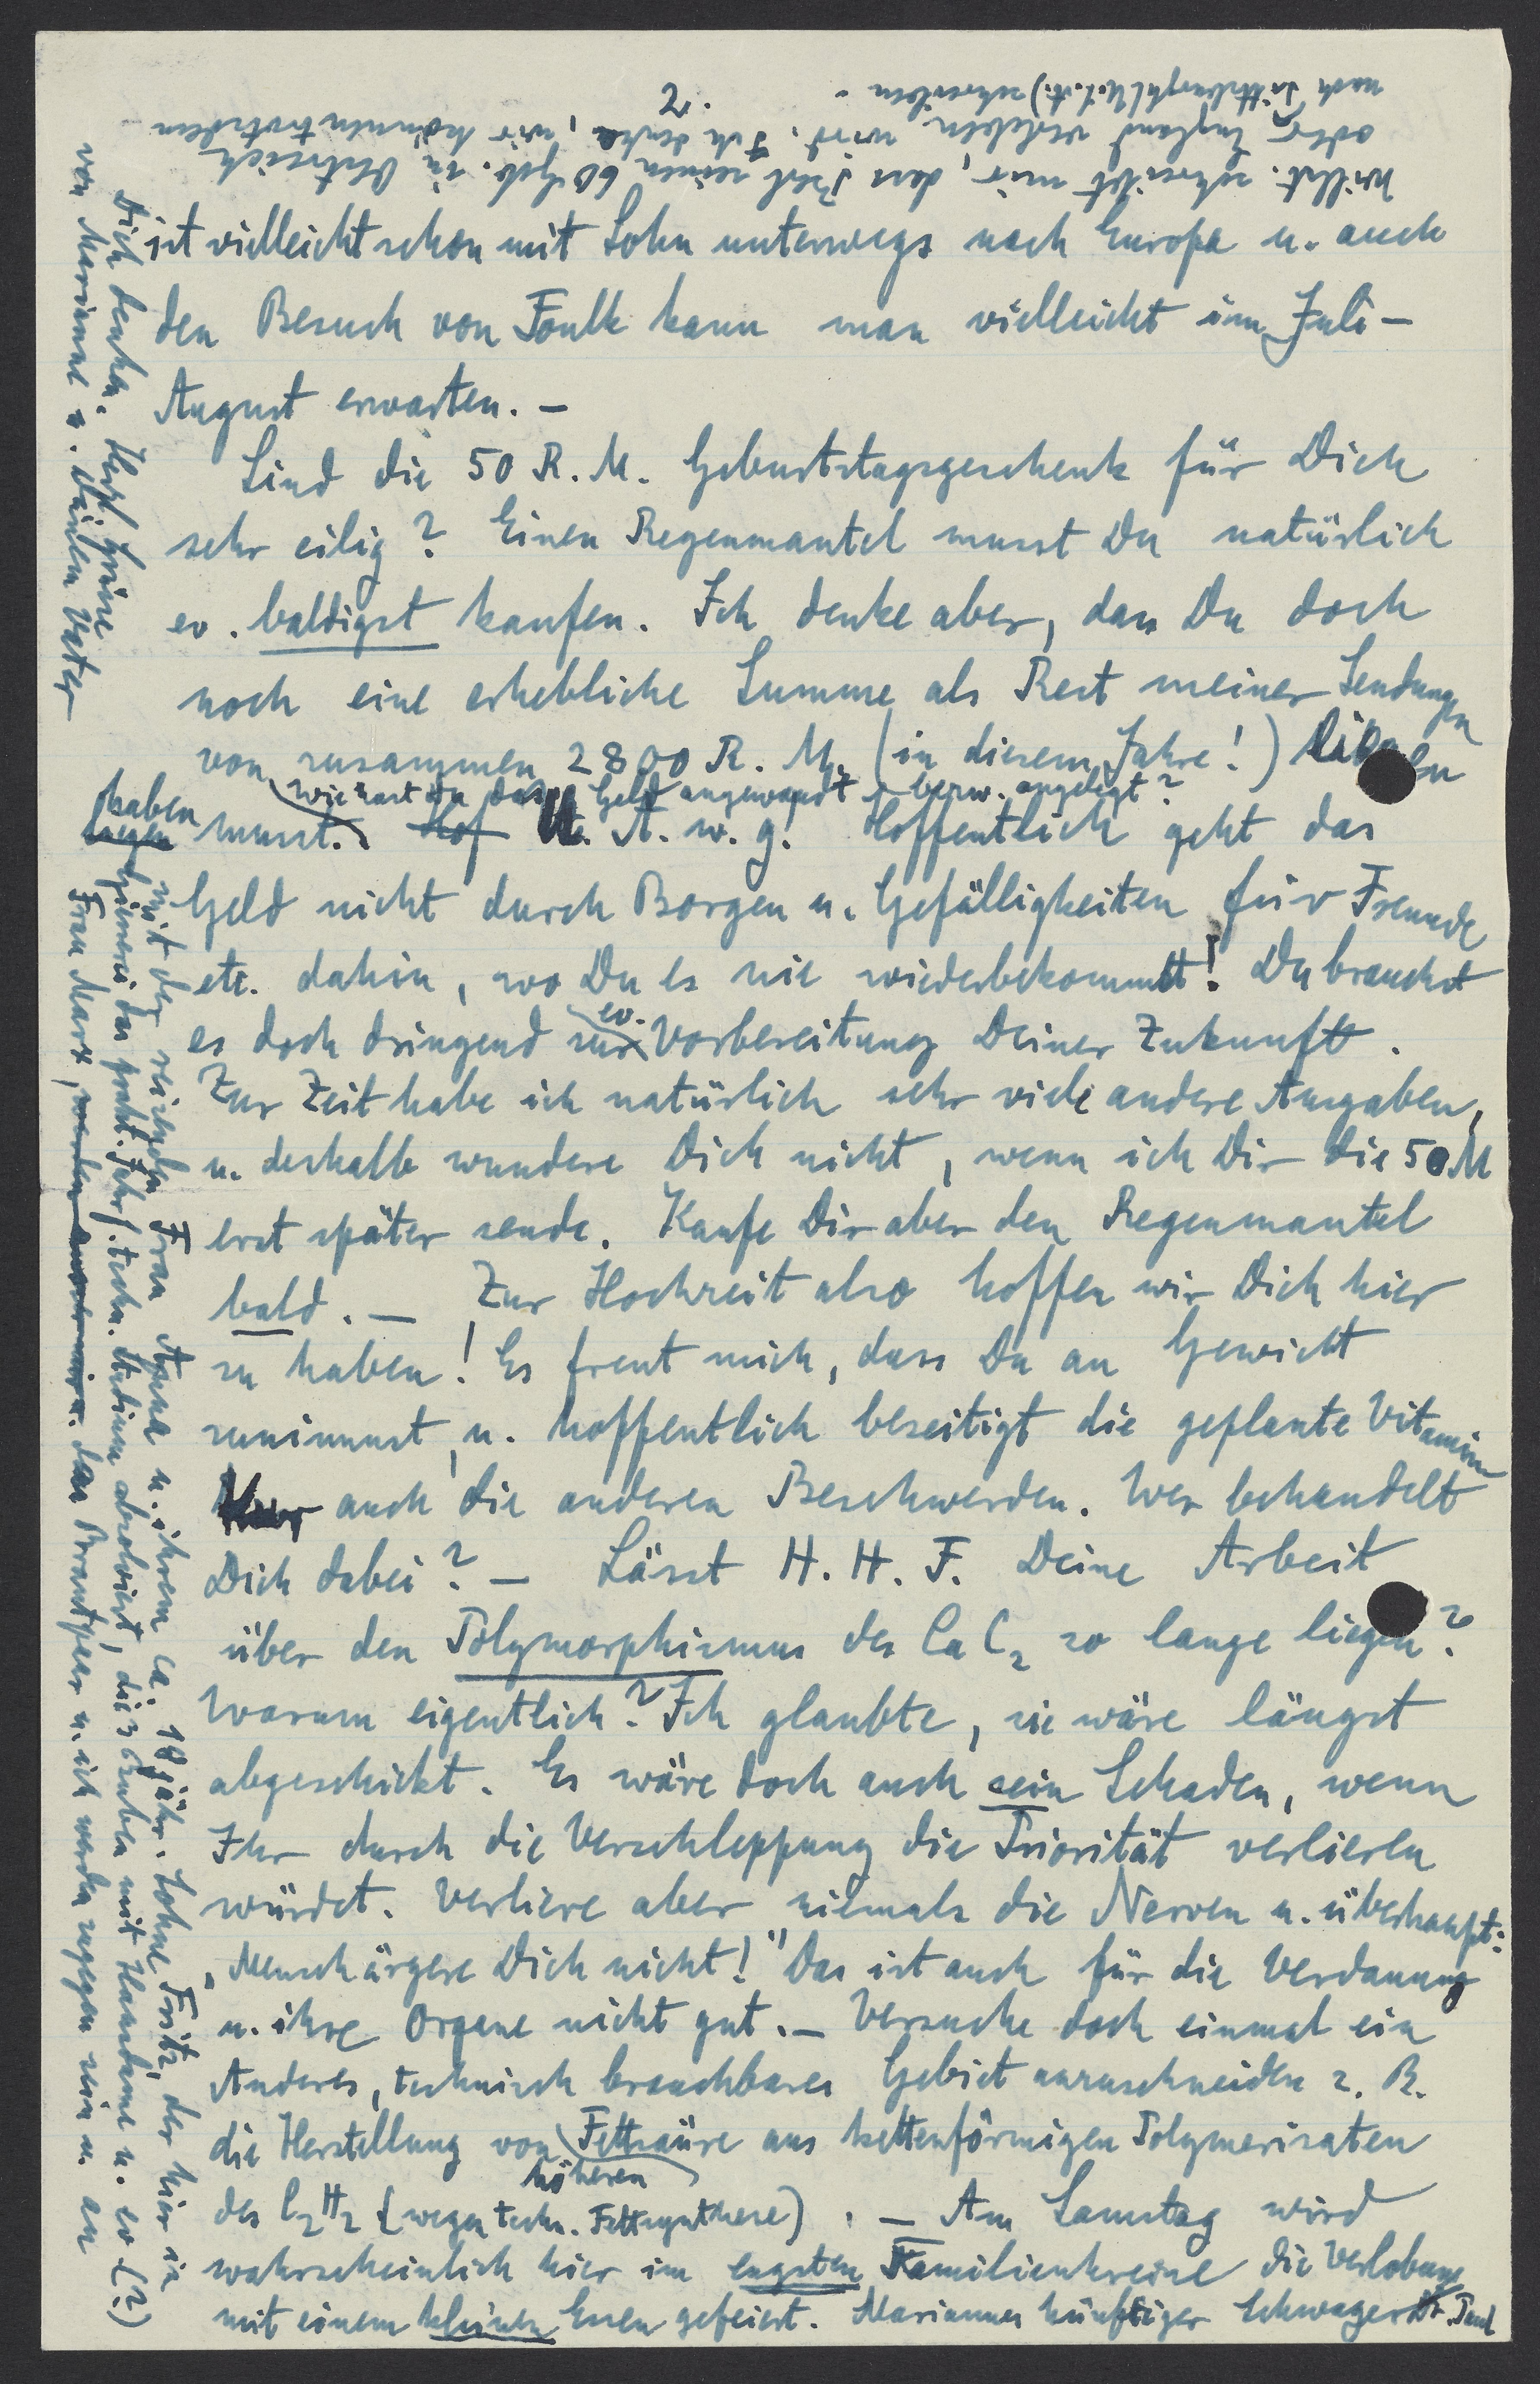 2.
ist vielleicht schon mit Sohn unterwegs nach Europa u. auch
den Besuch von Foulk kann man vielleicht im Juli -
August erwarten. -
Sind die 50 R. M. Geburtstagsgeschenk für Dich
sehr eilig? Einen Regenmantel musst Du natürlich
ev. baldigst kaufen. Ich denke aber, dass Du doch
noch eine erhebliche Summe als Rest meiner Sendungen
von zusammen 2800 R. M. (in diesem Jahre!)
wie hast du das Geld angewandt bezw. angelegt?
haben musst. Hof U. A. w. g. Hoffentlich geht das
liegen
Geld nicht durch Borgen u. Gefälligkeiten für Freunde
etc. dahin, wo Du es nie wiederbekommst! Du brauchst
es doch dringend zur ev. Vorbereitung Deiner Zukunft.
Zur Zeit habe ich natürlich sehr viele andere Ausgaben,
u. deshalb wundere Dich nicht, wenn ich Dir die 50 M
erst später sende. Kaufe Dir aber den Regenmantel
bald. - Zur Hochzeit also hoffen wir Dich hier
zu haben! Es freut mich, dass Du an Gewicht
zunimmst, u. hoffentlich beseitigt die geplante Vitamin
Kur auch die anderen Beschwerden. Wer behandelt
Dich dabei? - Lässt H. H. F. Deine Arbeit
über den Polymorphismus des CaC₂ so lange liegen?
Warum eigentlich? Ich glaubte, sie wäre längst
abgeschickt. Es wäre doch auch sein Schaden, wenn
Ihr durch die Verschleppung die Priorität verlieren
würdet. Verliere aber niemals die Nerven u. überhaupt:
„Mensch ärgere Dich nicht!" Das ist auch für die Verdauung
u. ihre Organe nicht gut. - Versuche doch einmal ein
Anderes, technisch brauchbares Gebiet anzuschneiden z. B.
die Herstellung von höheren Fettsäure aus kettenförmigen Polymerisaten
des C₂H₂ (wegen techn. Fettsynthese). - Am Samstag wird
wahrscheinlich hier im engsten Familienkreise die Verlobung
mit einem kleinen Essen gefeiert. Mariannes künftiger Schwager Dr. Paul
mit der reizenden Frau Anna u. ihrem ca. 18jähr. Sohne Fritz, der hier in
das prakt. Jahr f. techn. Studium absolviert, die 3 Buben mit Hausdame u. ev (?)
Frau Marx, werden das Brautpaar u. ich werden zugegen sein u. an
Dich denken. Herzl. Grüsse
von Marianne u. Deinem Vater
Willst. schreibt mir, dass Fred seinen 60 Geb. in Österreich
oder England verleben wird. Ich denke, wir könnten trotzdem
nach Pittsburgh (U.S.A.) schreiben -